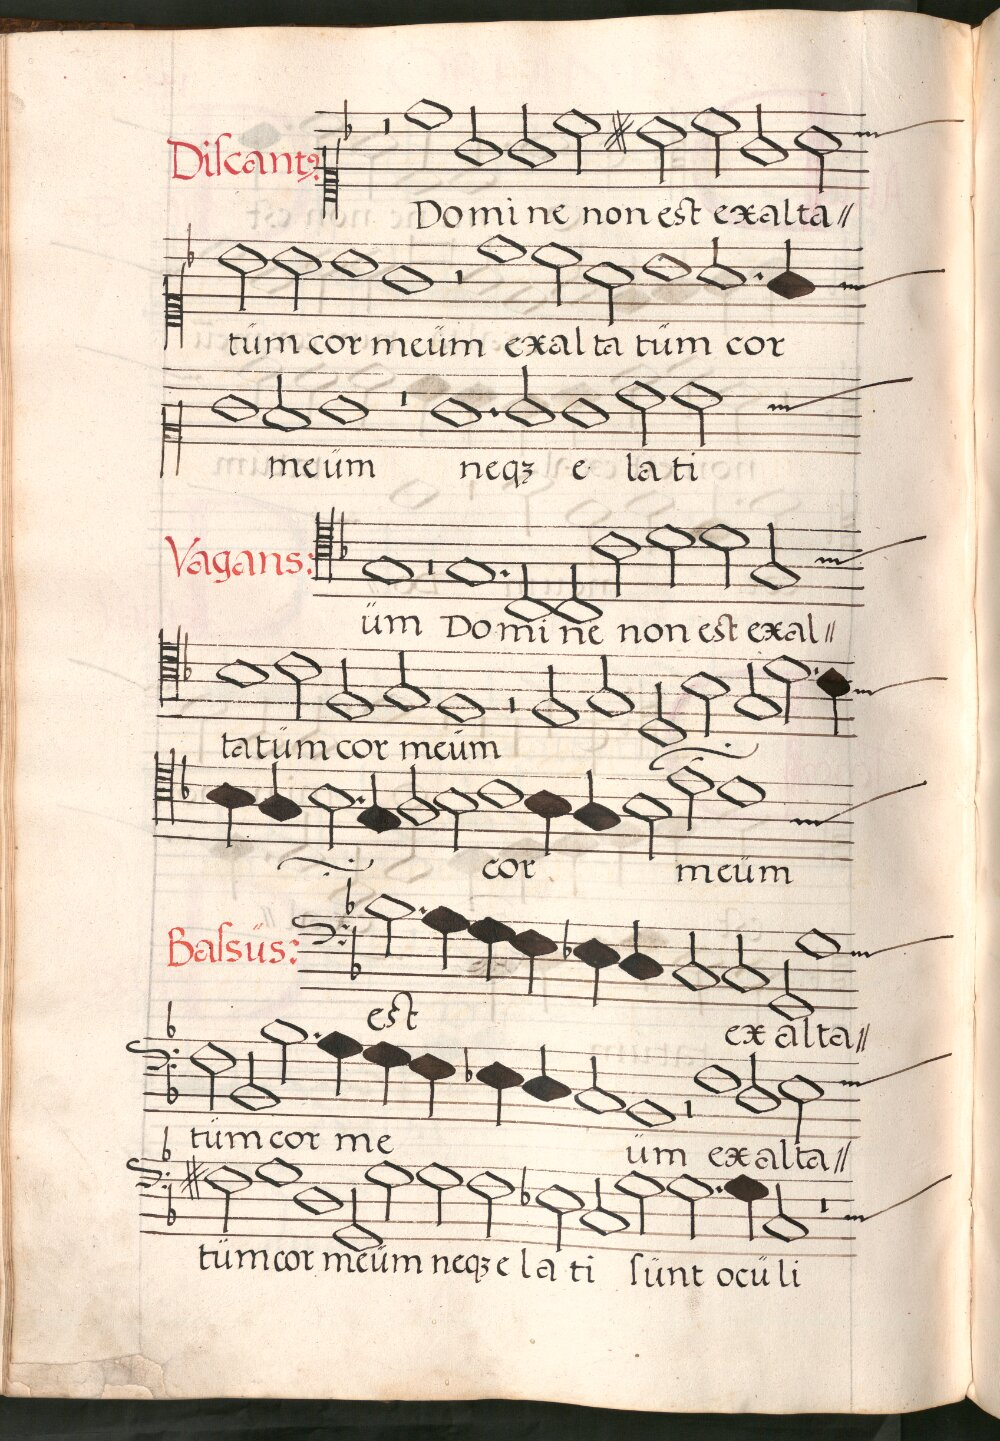 Diſcantꝰ:
Domine non est exalta//
tüm cor meüm exalta tüm cor
meüm neqꝫ e lati
Vagans:
üm Domine non est exal//
tatüm cor meüm
cor meüm
Baſsüs:
est exalta//
tüm cor me üm exalta//
tüm cor meüm neqꝫ e la ti ſünt ocü li